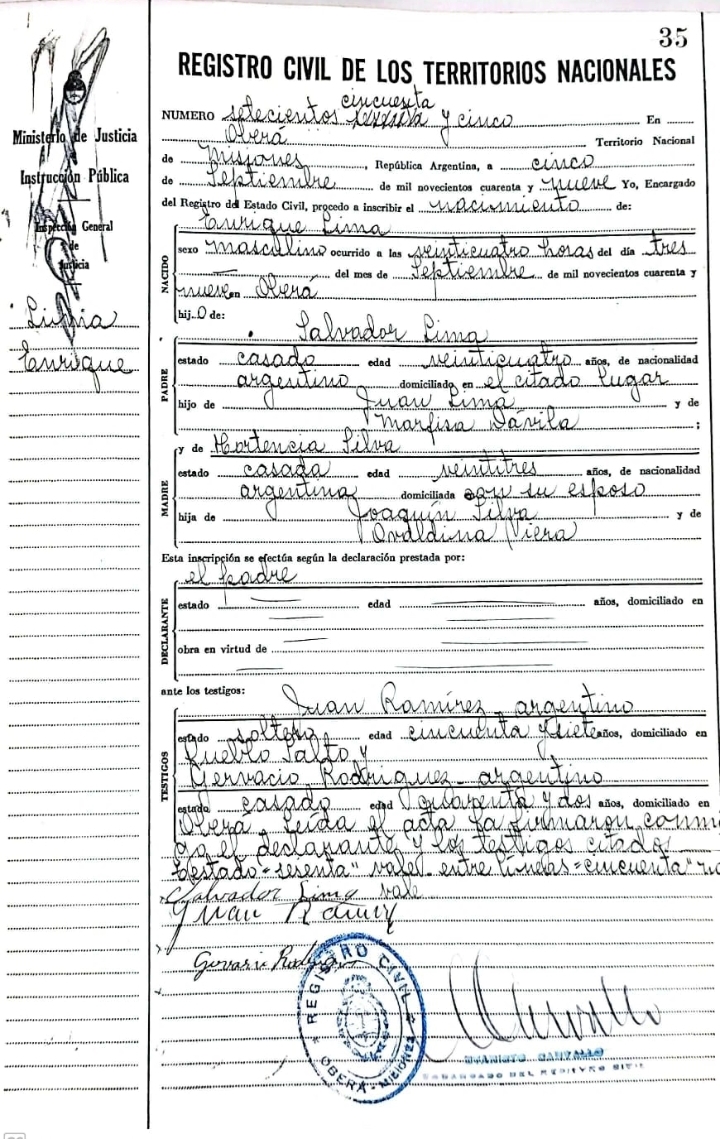 35
REGISTRO CIVIL DE LOS TERRITORIOS NACIONALES
Ministerio de Justicia
Instrucción Pública
Inspección General
de
Justicia
Lima
Enrique
cincuenta
NUMERO setecientos sesenta y cinco En
Oberá Territorio Nacional
de Misiones, República Argentina, a cinco
de Septiembre de mil novecientos cuarenta y nueve Yo, Encargado
del Registro del Estado Civil, procedo a inscribir el nacimiento de:
NACIDO
Enrique Lima
sexo masculino ocurrido a las veinticuatro horas del día tres
del mes de Septiembre de mil novecientos cuarenta y
nueve en Oberá
hij.o de:
PADRE
Salvador Lima
estado casado edad veinticuatro años, de nacionalidad
argentino domiciliado en el citado lugar
hijo de Juan Lima y de
Marfisa Dávila ;
MADRE
y de Hortencia Silva
estado casada edad veintitres años, de nacionalidad
argentina domiciliada con su esposo
hija de Joaquín Silva y de
Ovaldina Viera
Esta inscripción se efectúa según la declaración prestada por:
el padre
DECLARANTE
estado edad años, domiciliado en
obra en virtud de
ante los testigos:
TESTIGOS
Juan Ramírez argentino
estado soltero edad cincuenta y siete años, domiciliado en
Pueblo Salto y
Gervacio Rodriguez - argentino
estado casado edad cuarenta y dos años, domiciliado en
Oberá. Leída el acta la firmaron conmi
go el declarante y los testigos citados
testado = "sesenta" vale entre líneas = "cincuenta"
vale
Salvador Lima
Juan
REGISTRO CIVIL
OBERÁ - MISIONES
CANTALLO
ENCARGADO DEL REGISTRO CIVIL